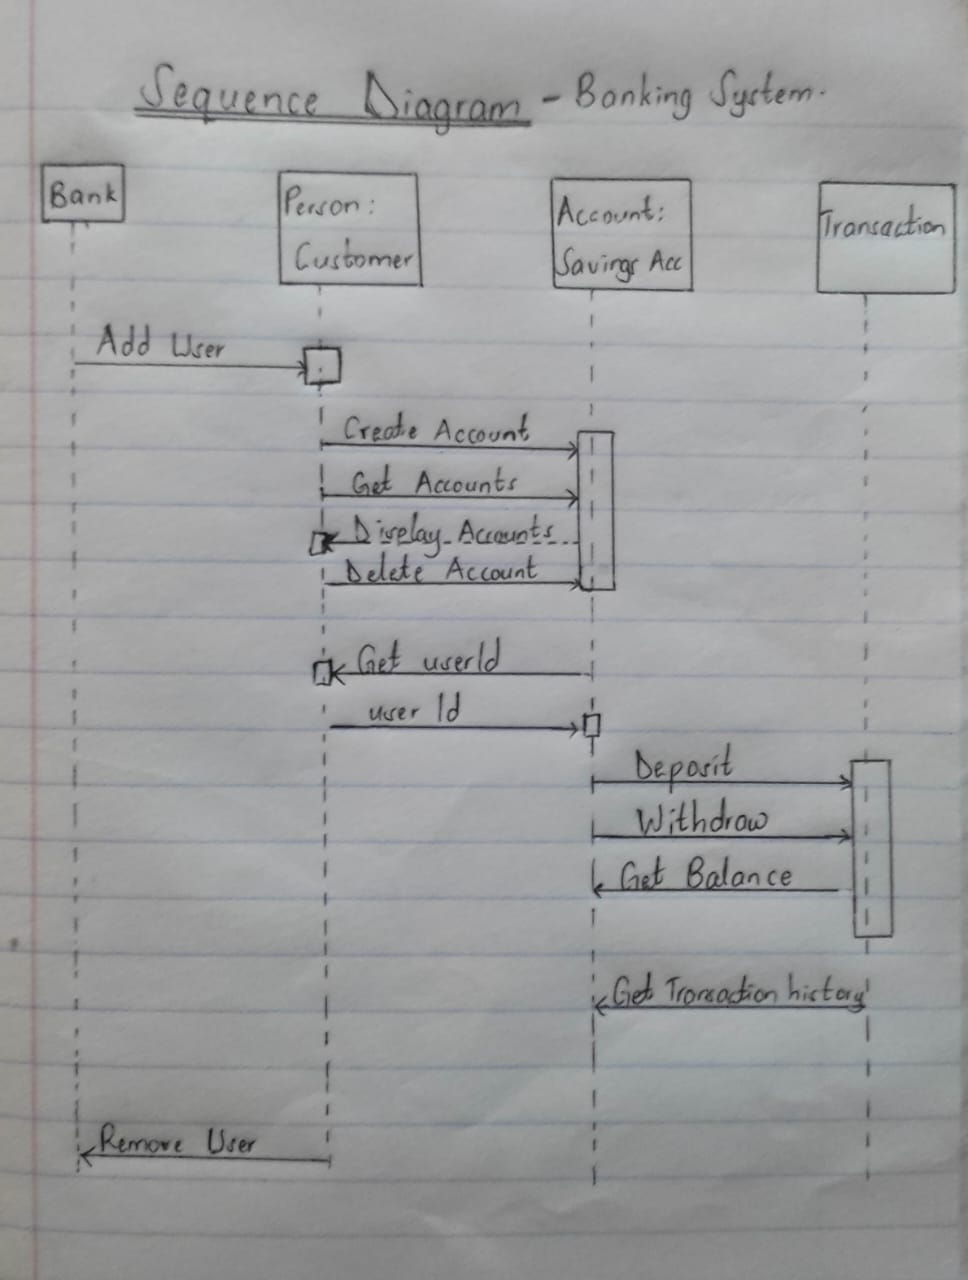 Sequence Diagram - Banking System.
Bank
Person:
Customer
Account:
Savings Acc
Transaction
Add User
Create Account
Get Accounts
Display Accounts
Delete Account
Get userId
user Id
Deposit
Withdraw
Get Balance
Get Transaction history
Remove User